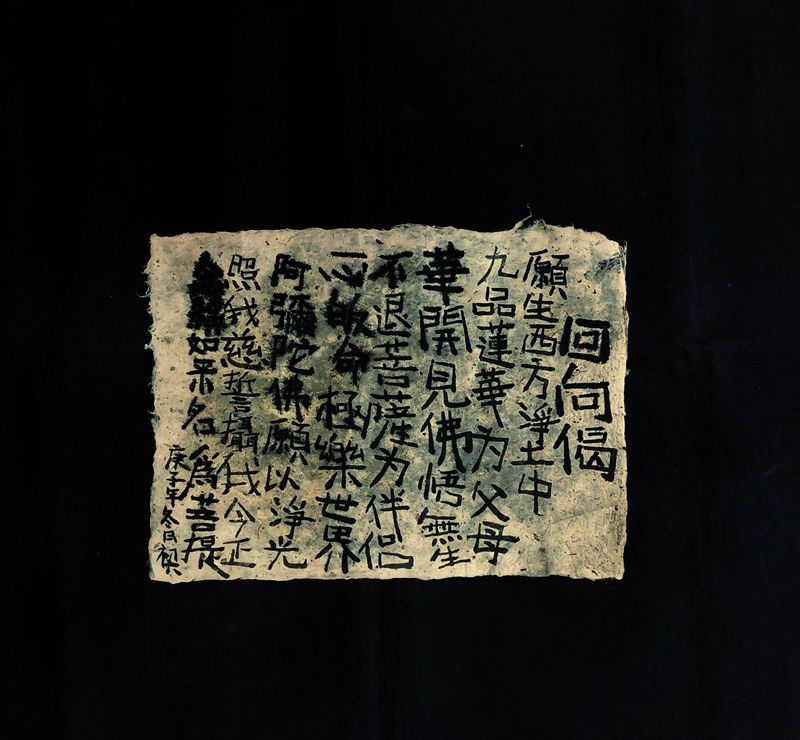 回向偈
願生西方淨土中
九品蓮華为父母
華開見佛悟無生
不退菩薩为伴侣
一心皈命極樂世界
阿彌陀佛願以淨光
照我慈誓攝我今正
念稱如来名爲菩提
庚子年冬月